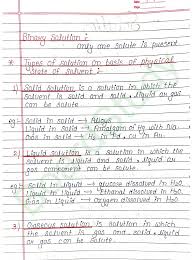 Binary Solution :
only one solute is present
* Types of solution on basis of physical
state of solvent :
1) Solid solution is a solution in which the
solvent is solid and solid, liquid or gas
can be solute.
eg:- Solid in Solid → Alloys
Liquid in Solid → Amalgam of Hg with Na
Gas in Solid →
2) Liquid solution is a solution in which the
solvent is liquid and solid, liquid or
gas component can be solute.
eg:- Solid in Liquid → glucose dissolved in H2O.
Liquid in Liquid → Ethanol dissolved in H2O.
Gas in Liquid → Oxygen dissolved in H2O.
3) Gaseous solution is solution in which
the solvent is gas and solid, liquid
or gas can be solute